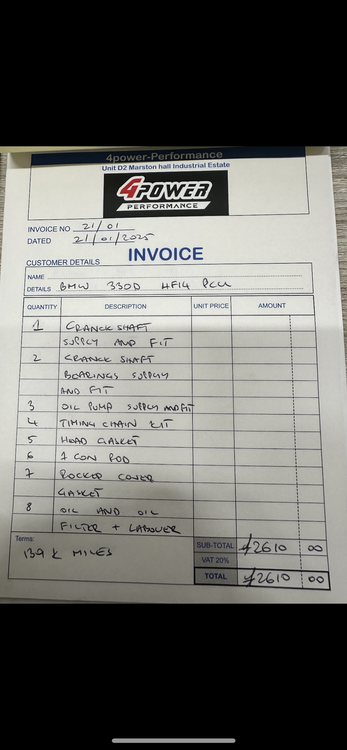 4power-Performance
Unit D2 Marston hall Industrial Estate
4POWER
PERFORMANCE
INVOICE NO 21/01
DATED 21/01/2025
INVOICE
CUSTOMER DETAILS
NAME
DETAILS BMW 330D HF14
QUANTITY DESCRIPTION UNIT PRICE AMOUNT
1 CRANCK SHAFT
SUPPLY AND FIT
2 CRANCK SHAFT
BOARINGS SUPPLY
AND FIT
3 OIL PUMP SUPPLY AND FIT
4 TIMING CHAIN KIT
5 HEAD GASKET
6 1 CON ROD
7 ROCKER COVER
GASKET
8 OIL AND OIL
FILTER + LABOUER
Terms:
139 K MILES
SUB-TOTAL £2610 00
VAT 20%
TOTAL £2610 00